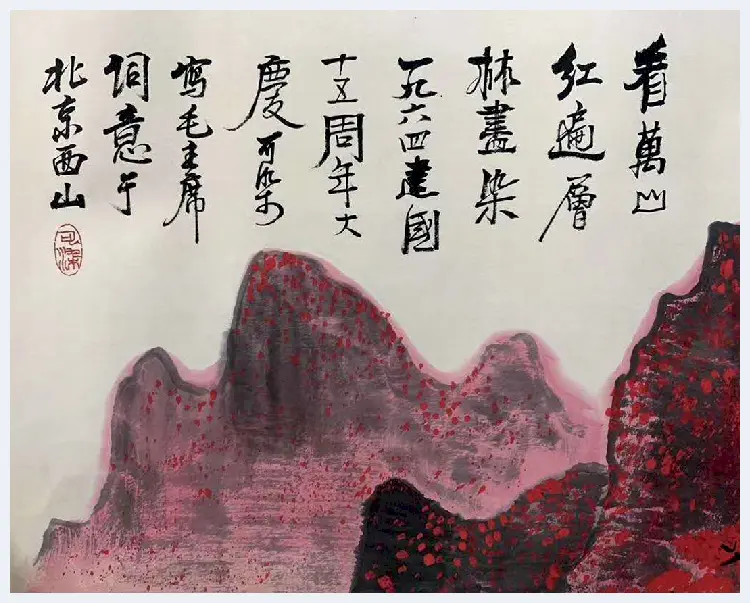 看萬山
红遍層
林盡染
一九六四建國
十五周年大
慶可染
寫毛主席
詞意于
北京西山
可染